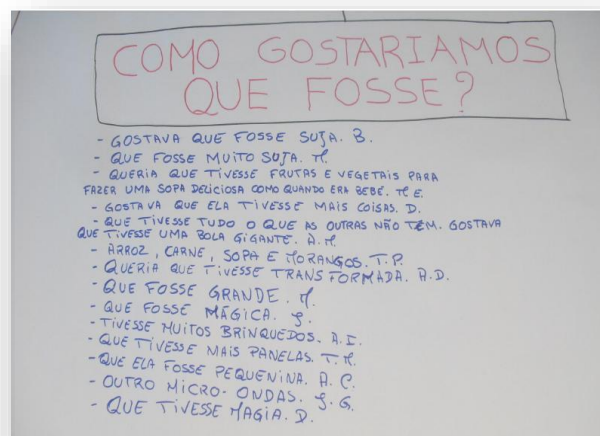 COMO GOSTARIAMOS
QUE FOSSE?
- GOSTAVA QUE FOSSE SUJA. B.
- QUE FOSSE MUITO SUJA. M.
- QUERIA QUE TIVESSE FRUTAS E VEGETAIS PARA
FAZER UMA SOPA DELICIOSA COMO QUANDO ERA BEBÉ. M E.
- GOSTAVA QUE ELA TIVESSE MAIS COISAS. D.
- QUE TIVESSE TUDO O QUE AS OUTRAS NÃO TÊM. GOSTAVA
QUE TIVESSE UMA BOLA GIGANTE. A.M.
- ARROZ, CARNE, SOPA E MORANGOS. T.P.
- QUERIA QUE TIVESSE TRANSFORMADA. A.D.
- QUE FOSSE GRANDE. M.
- QUE FOSSE MÁGICA. J.
- TIVESSE MUITOS BRINQUEDOS. A.I.
- QUE TIVESSE MAIS PANELAS. T.M.
- QUE ELA FOSSE PEQUENINA. A.C.
- OUTRO MICRO-ONDAS. J.G.
- QUE TIVESSE MAGIA. D.